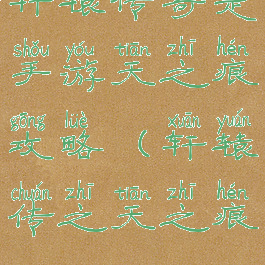 轩辕传奇
shǒu yóu tiān zhī hén
手游天之痕
gōng lüè xuān yuán
攻略(轩辕
chuán zhī tiān zhī hén
传之天之痕